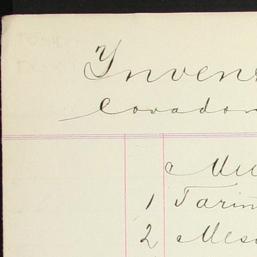 Inven
Covadon
Mu
1 Tarim
2 Mes